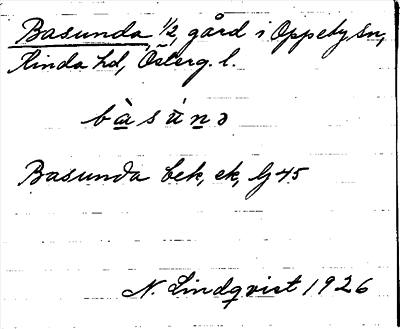 Basunda, 1/2, gård i Oppeby sn,
Kinda hd, Österg. l.
bàsúnə
Basunda bek, ek, Lj 45
N. Lindqvist 1926